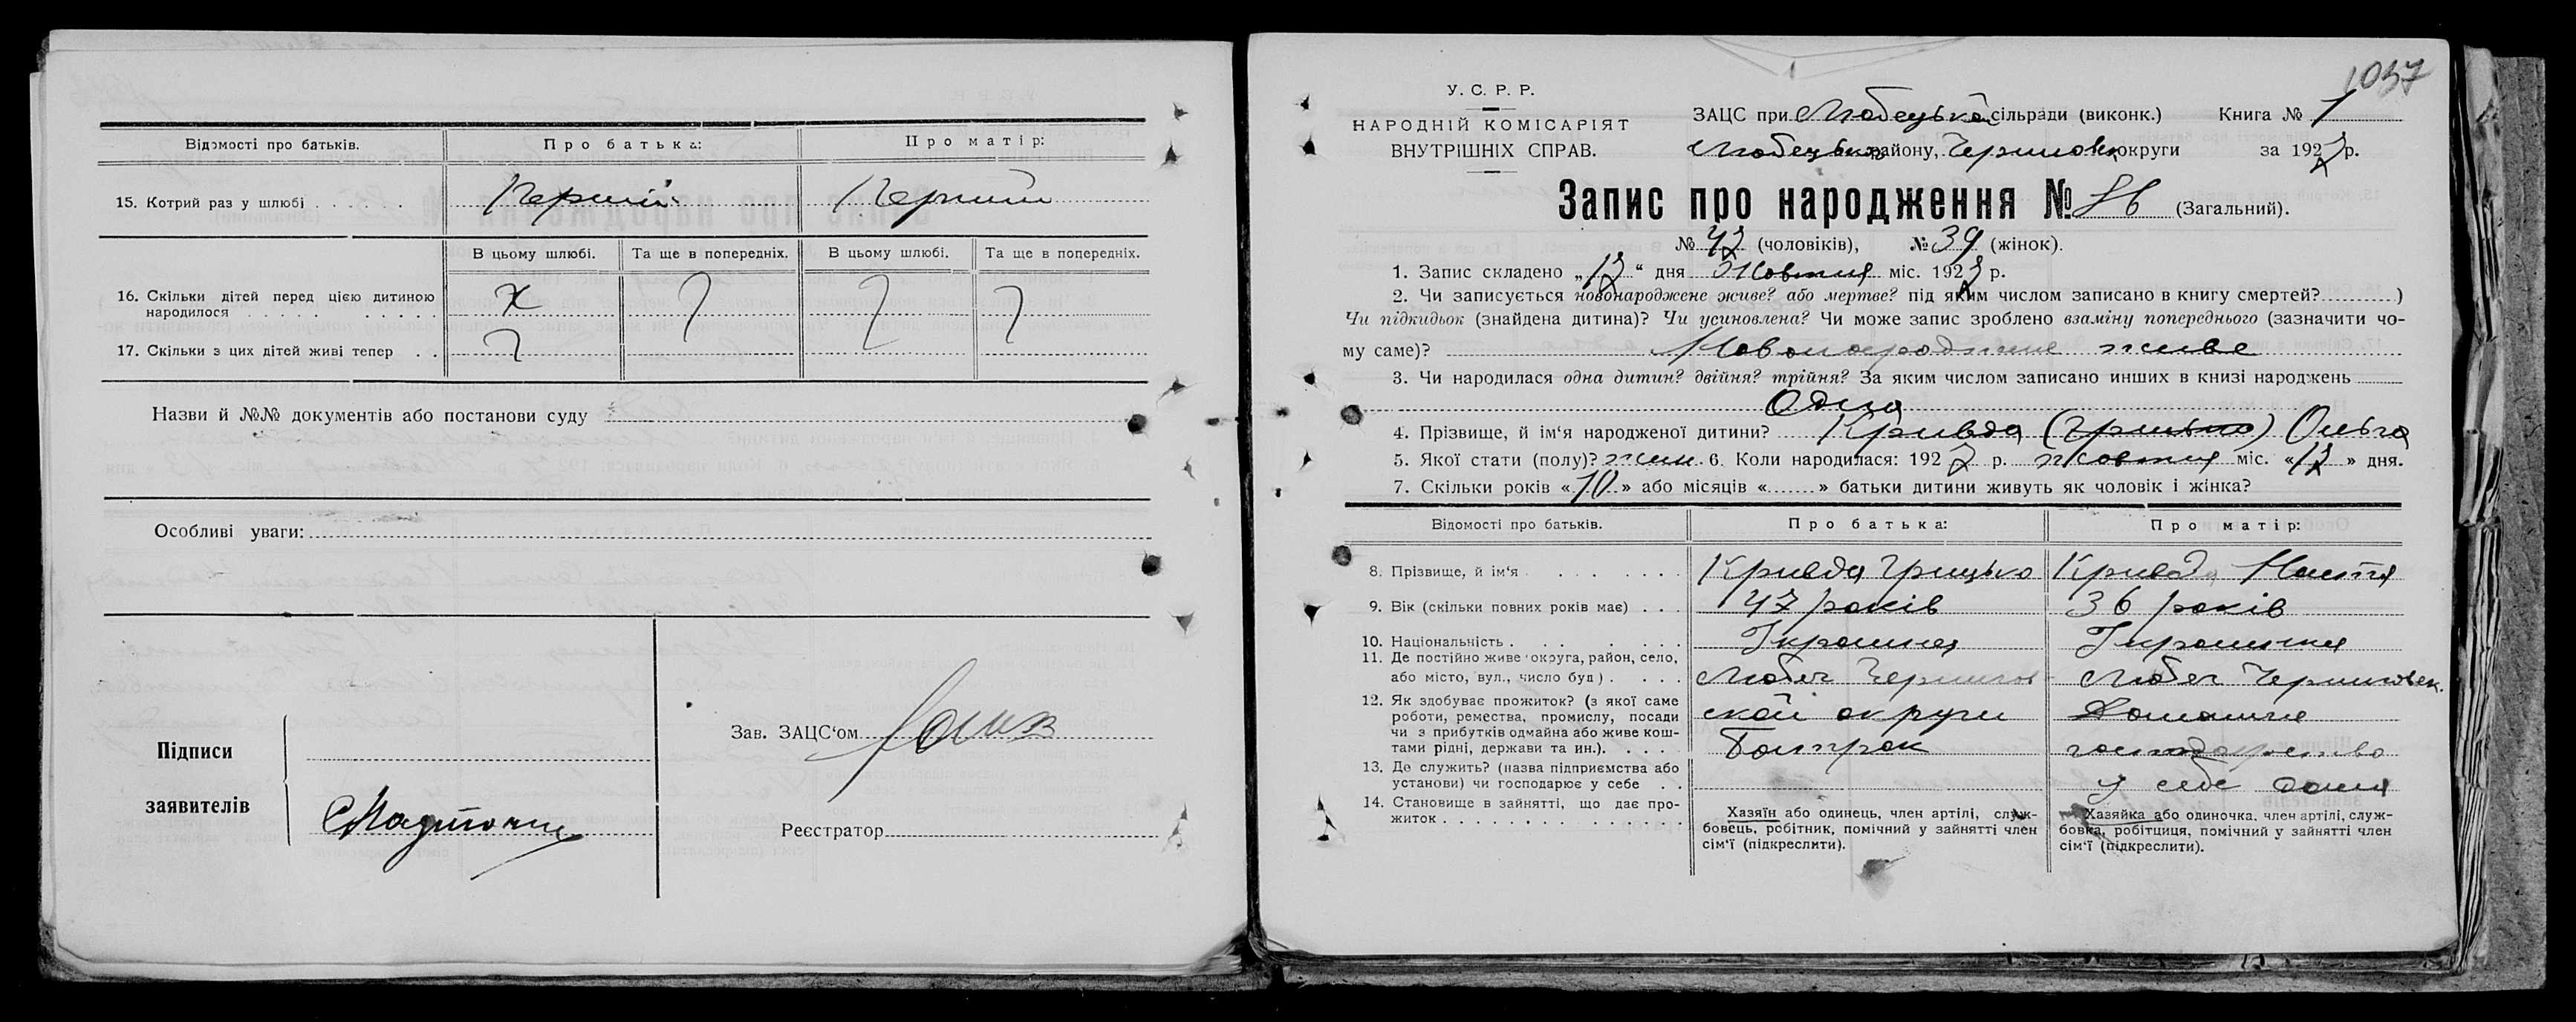 Відомості про батьків. Про батька: Про матір:
15. Котрий раз у шлюбі . . . . . . Перший Перший
В цьому шлюбі. Та ще в попередніх. В цьому шлюбі. Та ще в попередніх.
16. Скільки дітей перед цією дитиною
народилося . . . . .
17. Скільки з цих дітей живі тепер . .
Назви й №№ документів або постанови суду
Особливі уваги:
Підписи
заявителів
Зав. ЗАЦС‘ом
Реєстратор
1037
У. С. Р. Р.
НАРОДНІЙ КОМІСАРІЯТ
ВНУТРІШНІХ СПРАВ.
ЗАЦС при Любецькой сільради (виконк.) Книга № 1
Любецьков району, Чернигов округи за 1927 р.
Запис про народження № 86 (Загальний).
№ 47 (чоловіків), № 39 (жінок).
1. Запис складено „17“ дня Жовтня міс. 1927 р.
2. Чи записується новонароджене живе? або мертве? під яким числом записано в книгу смертей? )
Чи підкидьок (знайдена дитина)? Чи усиновлена? Чи може запис зроблено взаміну попереднього (зазначити чо-
му саме)? Новонароджене живе
3. Чи народилася одна дитин? двійня? трійня? За яким числом записано инших в книзі народжень
Одна
4. Прізвище, й ім‘я народженої дитини? Кривда Ольга
5. Якої статі (полу)? жин. 6. Коли народилася: 1927 р. жовтня міс. «17» дня.
7. Скільки років «10» або місяців «......» батьки дитини живуть як чоловік і жінка?
Відомості про батьків. Про батька: Про матір:
8. Прізвище, й ім‘я . . . . . . Кривда Грицько Кривда Настя
9. Вік (скільки повних років має) . . . 47 років 36 років
10. Національність . . . . . . Украинец Украинка
11. Де постійно живе (округа, район, село,
або місто, вул., число буд) . . . . Любеч Чернигов Любеч Черниговск.
12. Як здобуває прожиток? (з якої саме
роботи, ремества, промислу, посади
чи з прибутків одмайна або живе кош-
тами рідні, держави та ин.). . . . .
ской округи Домашне
Батрак господарство
13. Де служить? (назва підприємства або
установи) чи господарює у себе . . у себе дома
14. Становище в зайнятті, що дає про-
житок . . . . . . . . . . . . . .
Хазяїн або одинець, член артілі, служ-
бовець, робітник, помічний у зайнятті член
сім‘ї (підкреслити).
Хазяйка або одиночка, член артілі, служ-
бовка, робітниця, помічний у зайнятті член
сім‘ї (підкреслити).